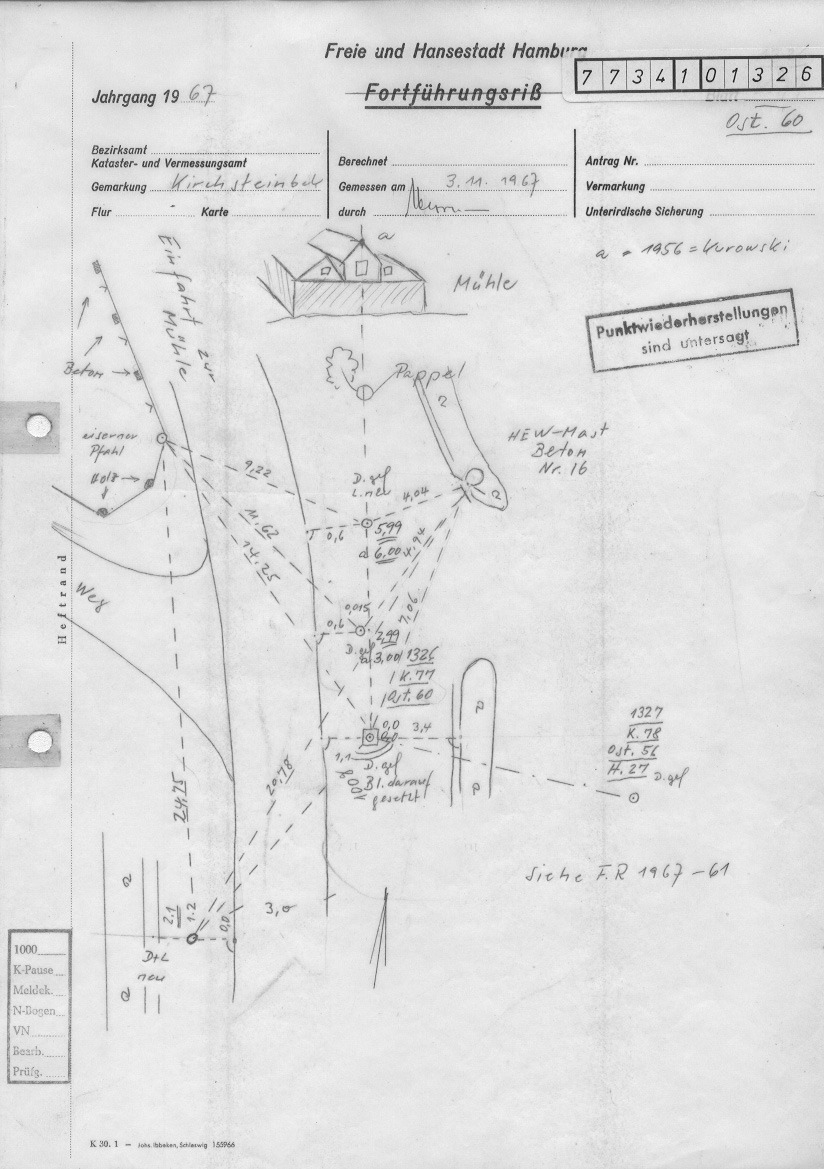 Freie und Hansestadt Hamburg
7 7 3 4 1 0 1 3 2 6
Jahrgang 19 67
Fortführungsriß
Ost. 60
Bezirksamt
Kataster- und Vermessungsamt
Berechnet
Antrag Nr.
Gemarkung Kirchsteinbek
Gemessen am 3. 11. 1967
Vermarkung
Flur Karte
durch
Unterirdische Sicherung
a = 1956 = Kurowski
a
Mühle
Einfahrt zur
Mühle
Punktwiederherstellungen
sind untersagt
Beton
Pappel
HEW-Mast
Beton
Nr. 16
eiserner
Pfahl
Holz
9,22
D. gef
L. neu
4,04
0,6
5,99
6,00
11.62
14.25
Heftrand
Weg
0,015
0,6
7,06
2,99
D. gef
3,00
1326
K. 77
Ost. 60
0,0
3,4
1,1
D. gef
Bl. darauf
gesetzt
1327
K. 78
Ost. 56
H. 27
D. gef
20,78
24,75
siehe F.R 1967-61
2,1
1.2
0,0
3,0
D+L
neu
1000
K-Pause
Meldek.
N-Bogen
VN
Bearb.
Prüfg.
K 30. 1 – Johs. Ibbeken, Schleswig 155966